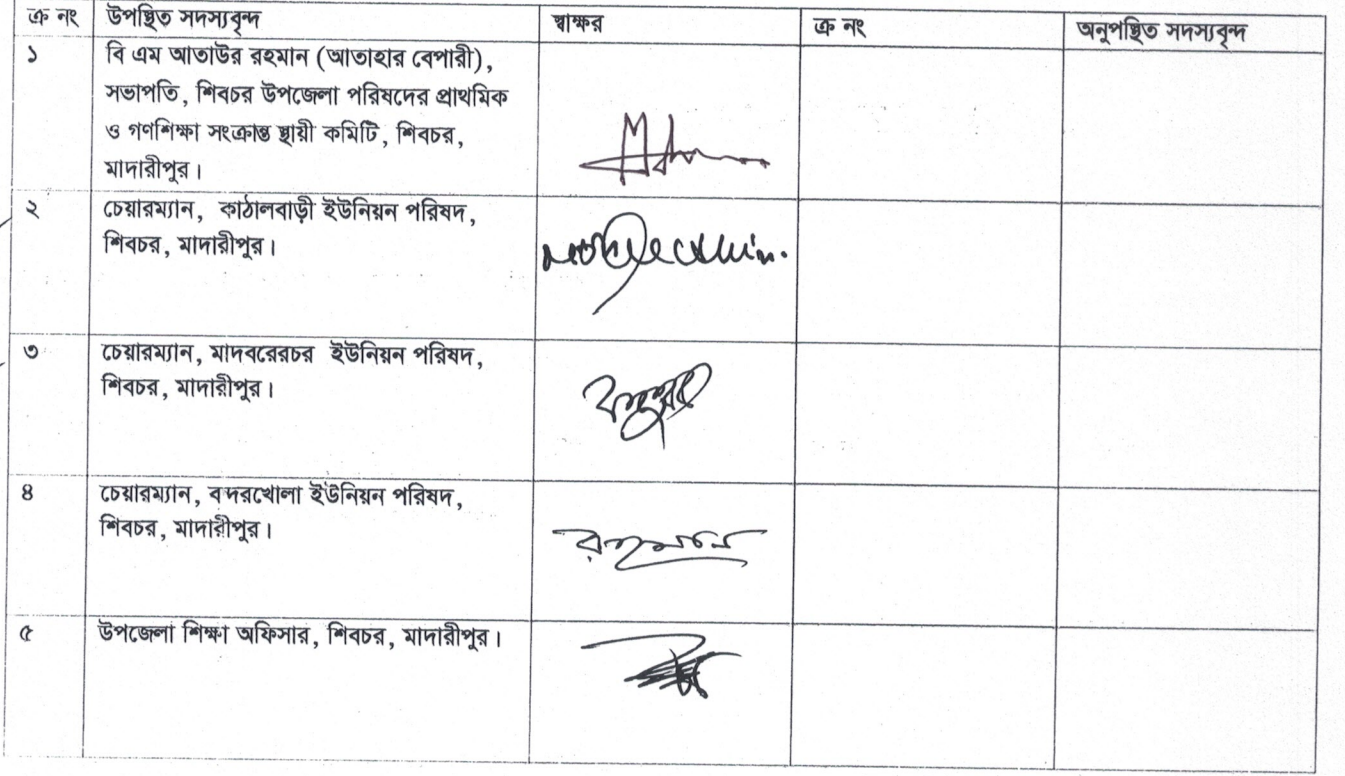 ক্র নং উপস্থিত সদস্যবৃন্দ স্বাক্ষর ক্র নং অনুপস্থিত সদস্যবৃন্দ
১ বি এম আতাউর রহমান (আতাহার বেপারী),
সভাপতি, শিবচর উপজেলা পরিষদের প্রাথমিক
ও গণশিক্ষা সংক্রান্ত স্থায়ী কমিটি, শিবচর,
মাদারীপুর।
২ চেয়ারম্যান, কাঠালবাড়ী ইউনিয়ন পরিষদ,
শিবচর, মাদারীপুর।
৩ চেয়ারম্যান, মাদবরেরচর ইউনিয়ন পরিষদ,
শিবচর, মাদারীপুর।
৪ চেয়ারম্যান, বন্দরখোলা ইউনিয়ন পরিষদ,
শিবচর, মাদারীপুর।
রহমান
৫ উপজেলা শিক্ষা অফিসার, শিবচর, মাদারীপুর।